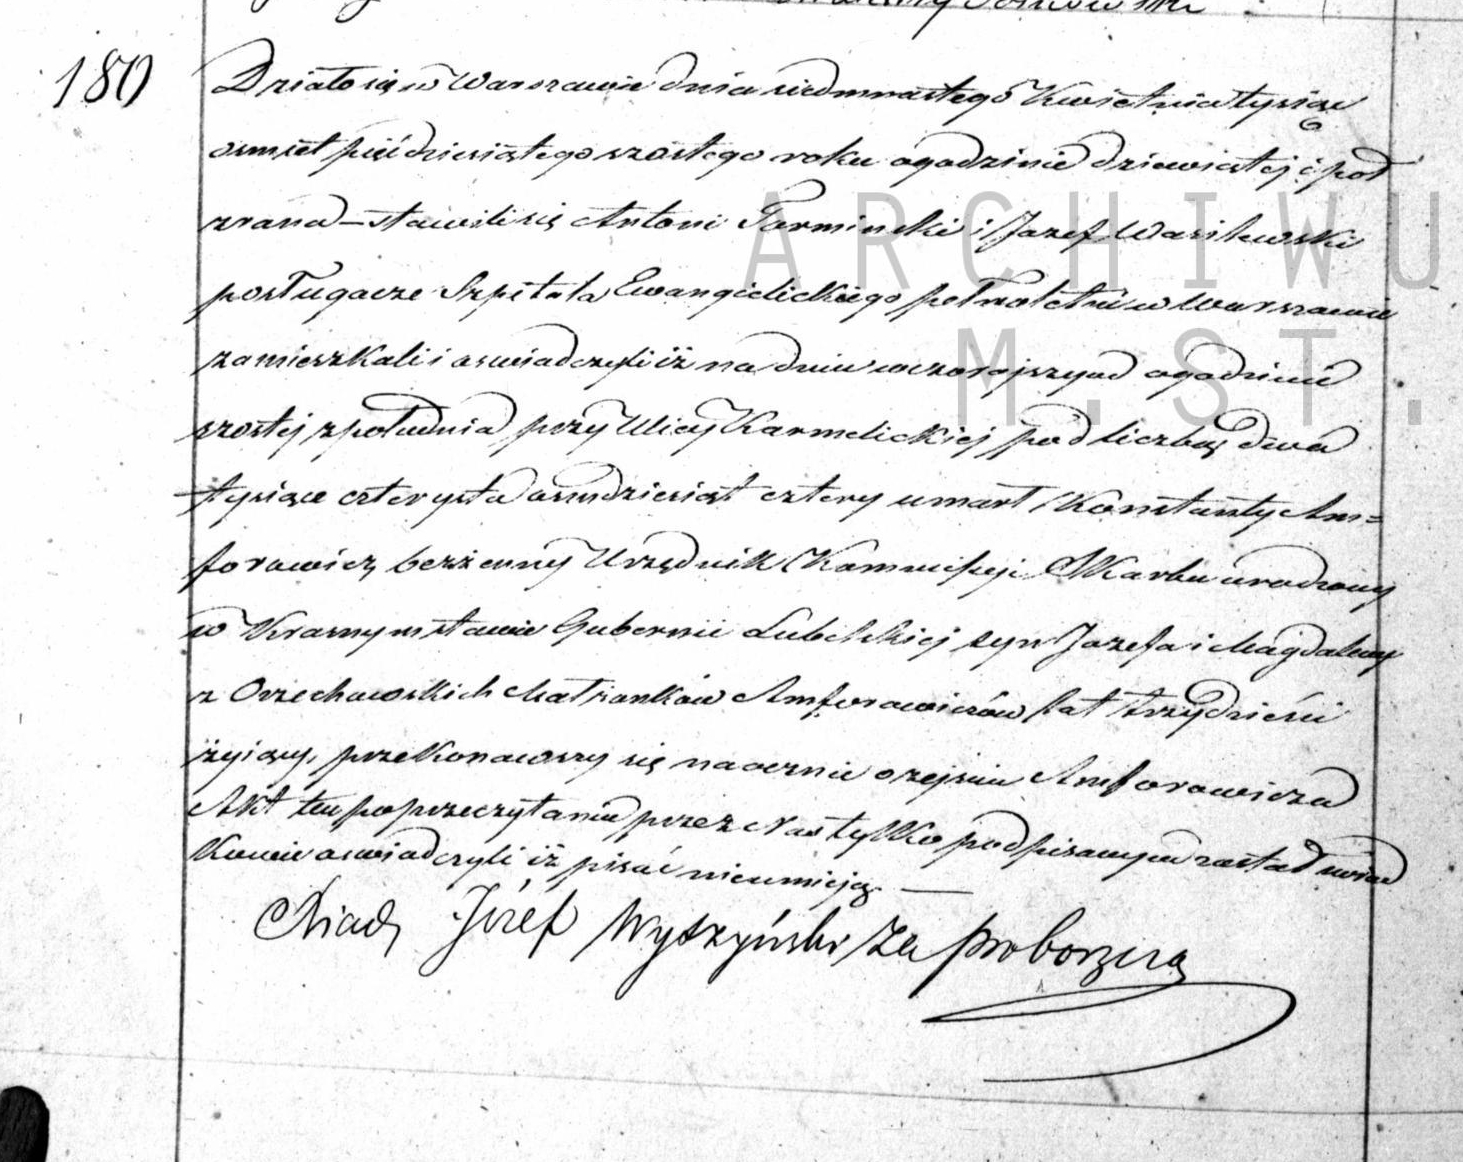 180
Działo się w Warszawie dnia siedmnastego Kwietnia tysiąc
osmset pięćdziesiątego szostego roku o godzinie dziewiątej i poł
zrana – stawili się Antoni Tarminski i Jozef Wasilewski
posługacze Szpitala Ewangielickiego pełnoletni w Warszawie
zamieszkali i oswiadczyli iż na dniu wczorajszym o godzinie
szostej z południa przy Ulicy Karmelickiej pod liczbą dwa
tysiące czterysta osmdziesiąt cztery umarł Konstanty Am=
forowicz bezżenny Urzędnik Kommissyi Skarbu urodzony
w Krasnymstawie Gubernii Lubelskiej syn Jozefa i Magdaleny
z Orzechowskich Małżonków Amforowiczów lat trzydzieści
żyjący, przekonawszy się naocznie o zejsciu Amforowicza
Akt ten po przeczytaniu przez Nas tylko podpisanym został swiad
kowie oswiadczyli iż pisać nieumieją. —
Józef Wyszyński za proboszcza
ARCHIWU
M.ST.